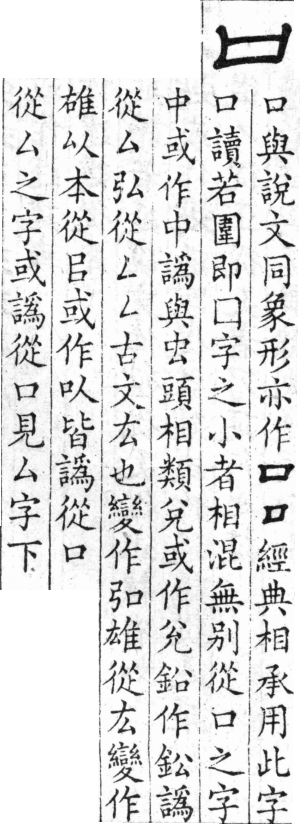 口
口與說文同象形亦作口口經典相承用此字
口讀若圍即囗字之小者相混無别從口之字
中或作中譌與虫頭相類兌或作兊鉛作鈆譌
從厶弘從𠃋𠃋古文厷也變作⿰弓口雄從厷變作
䧺以本從㠯或作㕥皆譌從口
從厶之字或譌從口見厶字下